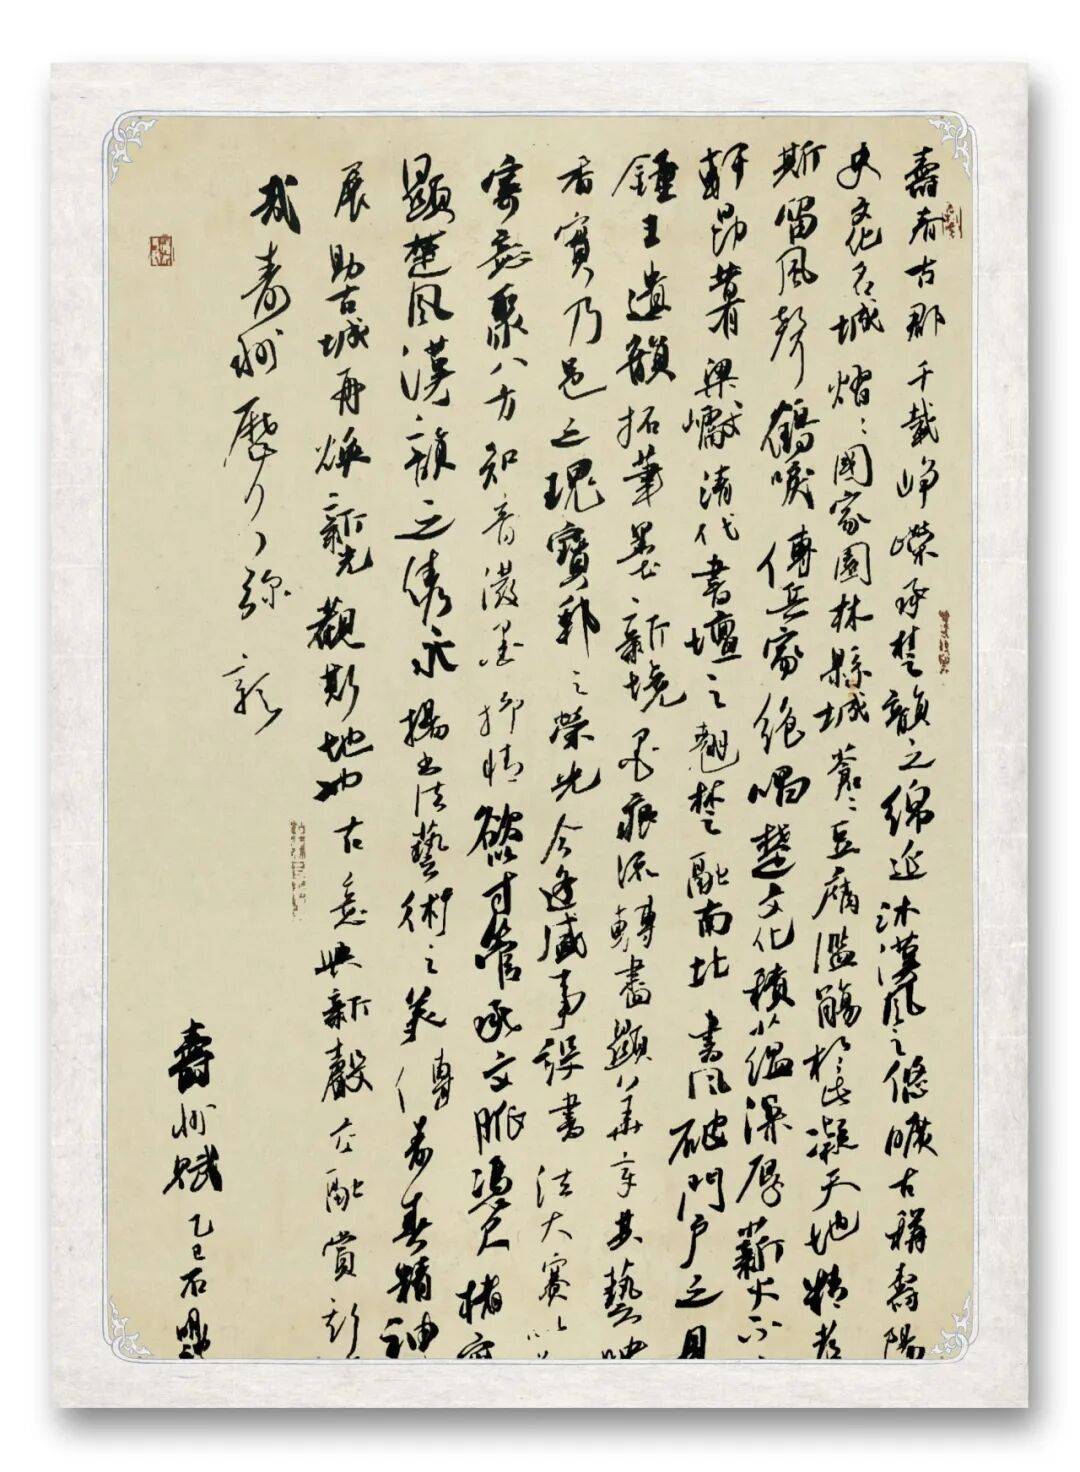 壽春古郡千載崢嶸承楚韻之綿延沐漢風之悠曠古稱壽陽
史文化名城熠〻國家園林縣城蒼〻豆腐濫觴於此凝天地精
斯留風聲鶴唳傳兵家絕唱楚文化積蘊深厚薪火不
軒昂昔有梁巘清代書壇之翹楚融南北書風破門戶之見
鍾王遺韻拓筆墨新境墨痕流轉盡顯八其藝
香實乃邑之瑰寶郡之榮光今逢盛事設書法大賽以
寄意聚八方知音潑墨抒情欲寸管承文脈憑尺楮
顯楚風漢韻之雋永揚書法藝術之美傳壽春精神
展助古城再煥新光觀斯地也古意與新聲交融賞彭
哉壽州歷久彌新
壽州賦乙巳石